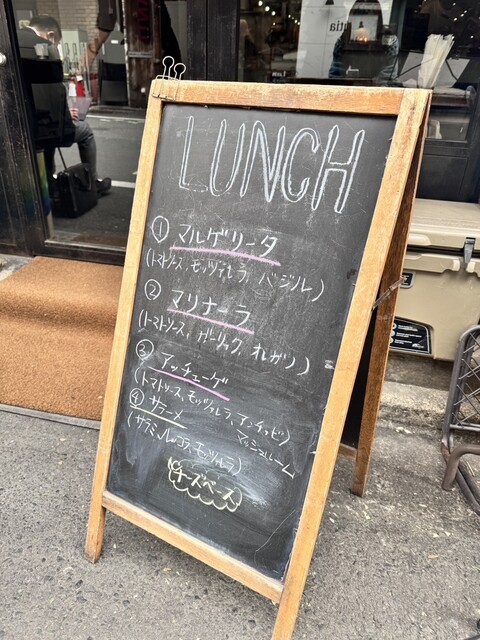 LUNCH
① マルゲリータ
(トマトソース、モッツァレラ、バジル)
② マリナーラ
(トマトソース、ガーリック、オレガノ)
③ アッチューゲ
(トマトソース、モッツァレラ、アンチョビ)
④ サラーメ
マッシュルーム
(サラミ、ルッコラ、モッツァレラ)
チーズベース